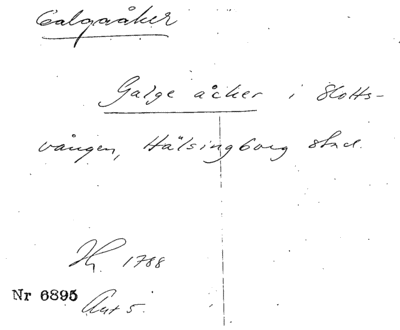 Galgaåker
Galge åcker i Slotts-
vången, Hälsingborg stad.
Hg. 1788
Nr 6895
Akt 5.